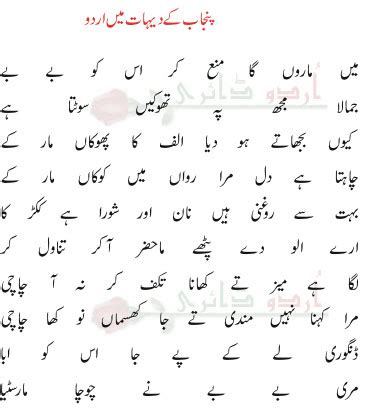 پنجاب کے دیہات میں اردو
میں ماروں گا منع کر اس کو بے بے
جمالا مجھ پہ تھوکیں سوٹتا ہے
کیوں بجھاتے ہو دیا الف کا پھوکاں مار کے
چاہتا ہے دل مرا رواں میں کوکاں مار کے
بہت سے روغنی ہیں نان اور شورا ہے ککڑ کا
ارے الو دے پٹھے ماحضر آکر تناول کر
لگا ہے میز تے کھانا تکلف کر نہ آ چاچی
مرا کہنا نہیں مندی تے جا کھسماں نو کھا چاچی
ڈنگوری لے کے پے جا اس کو ابا
مری بے بے نے چوچا مارسٹیا
اُردو ڈائری
اُردو ڈائری
اُردو ڈائری